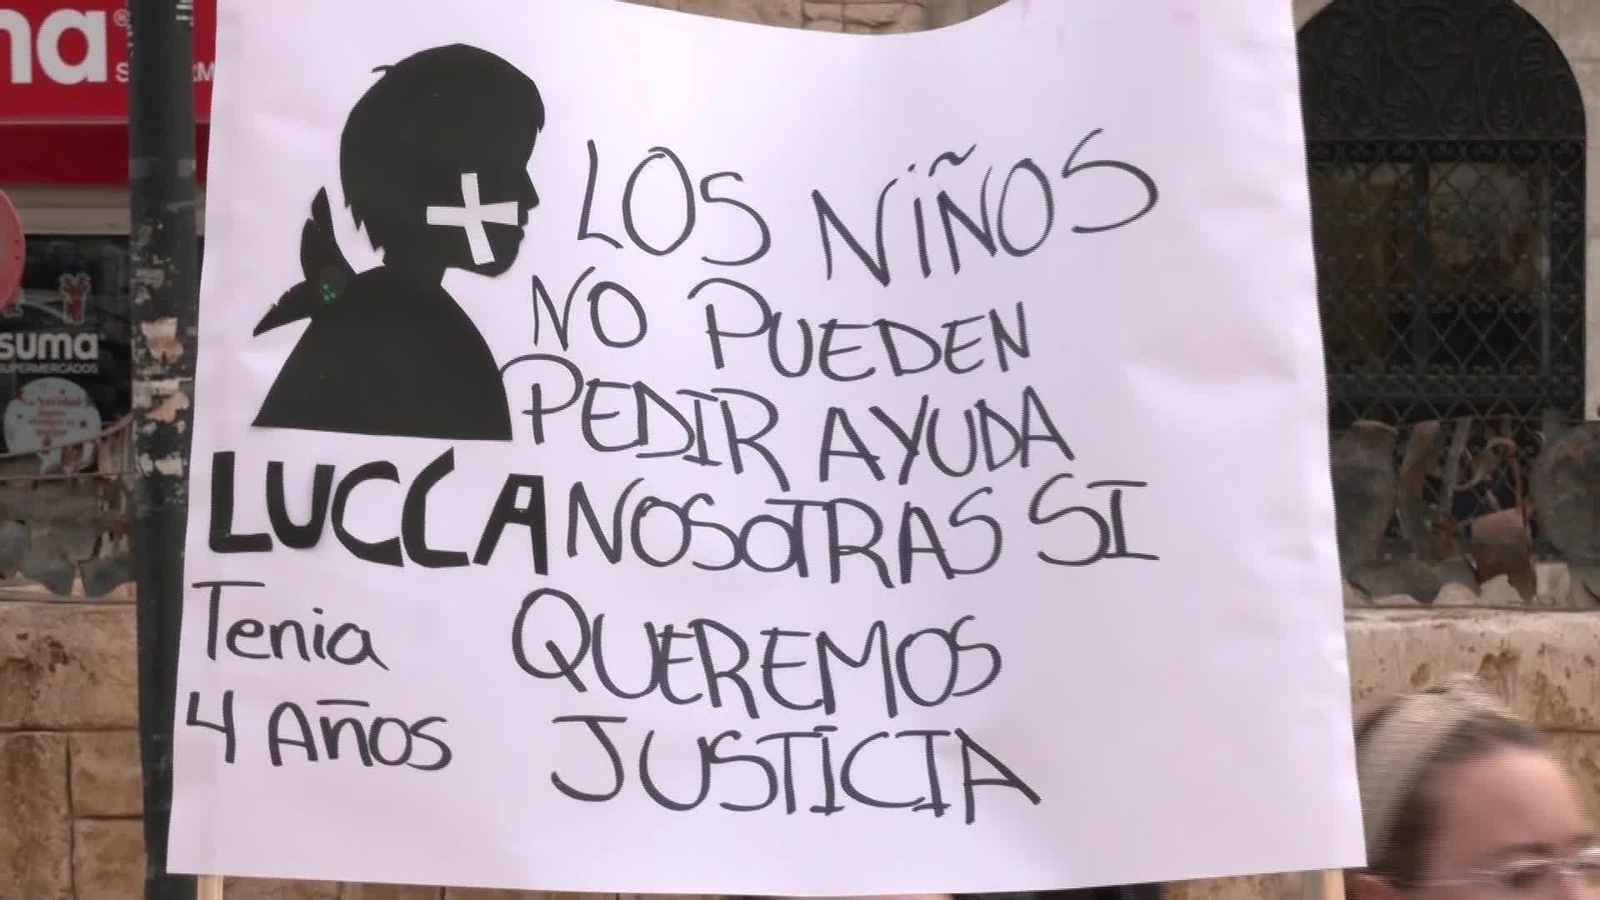 na
suma
SUPERMERCADOS
LOS NIÑOS
NO PUEDEN
PEDIR AYUDA
LUCCA NOSOTRAS SI
Tenia
4 AÑOS
QUEREMOS
JUSTICIA